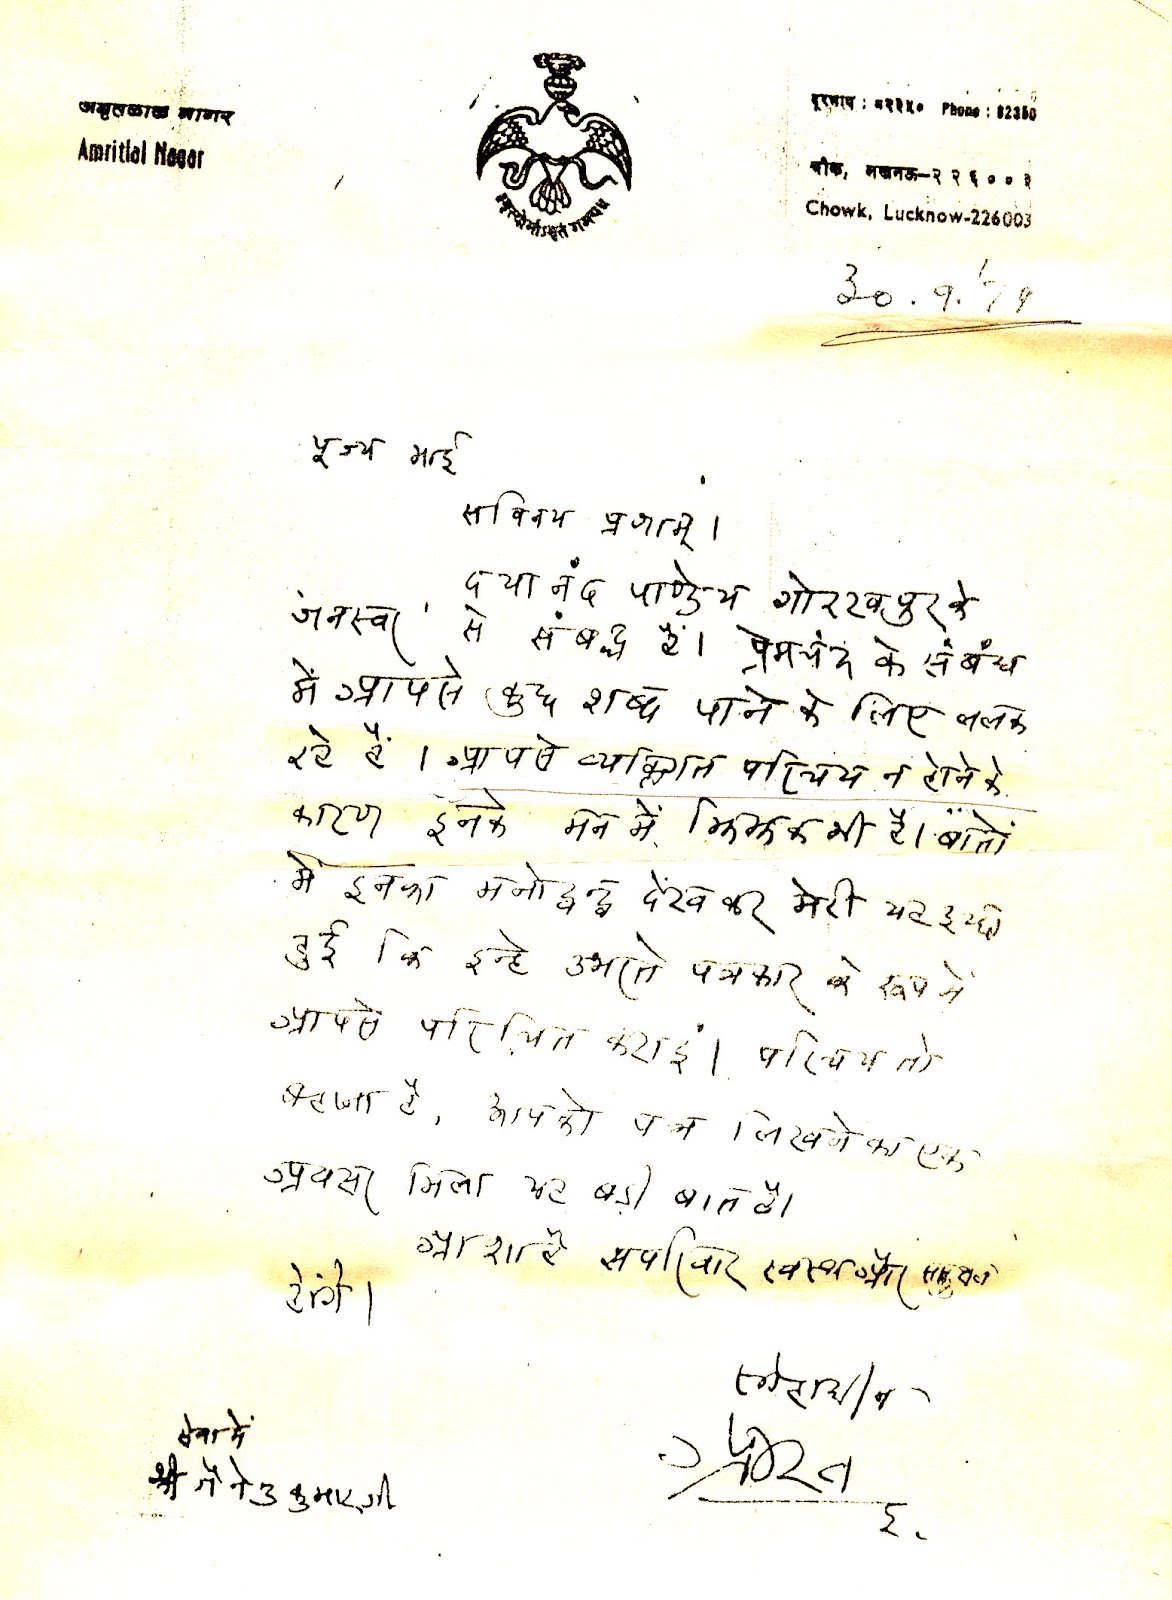 अमृतलाल नागर
Amritlal Nagar
मृत्योर्माऽमृतं गमय
दूरभाष : ८२३५० Phone : 82350
चौक, लखनऊ-२२६००३
Chowk, Lucknow-226003
30.9.'79
पूज्य भाई
सविनय प्रणाम।
दयानंद पाण्डेय गोरखपुर के
'जनस्वर' से संबद्ध हैं। प्रेमचंद के संबंध
में आपसे कुछ शब्द पाने के लिए ललक
रहे हैं। आपसे व्यक्तिगत परिचय न होने के
कारण इनके मन में झिझक भी है। बातों
में इनका मनोद्वन्द्व देखकर मेरी यह इच्छा
हुई कि इन्हें उभरते पत्रकार के रूप में
आपसे परिचित कराऊं। परिचय तो
बहाना है, आपको पत्र लिखने का एक
अवसर मिला यह बड़ी बात है।
आशा है सपरिवार स्वस्थ और सकुशल
होंगे।
स्नेहाधीन
सेवा में
श्री जैनेन्द्र कुमार जी